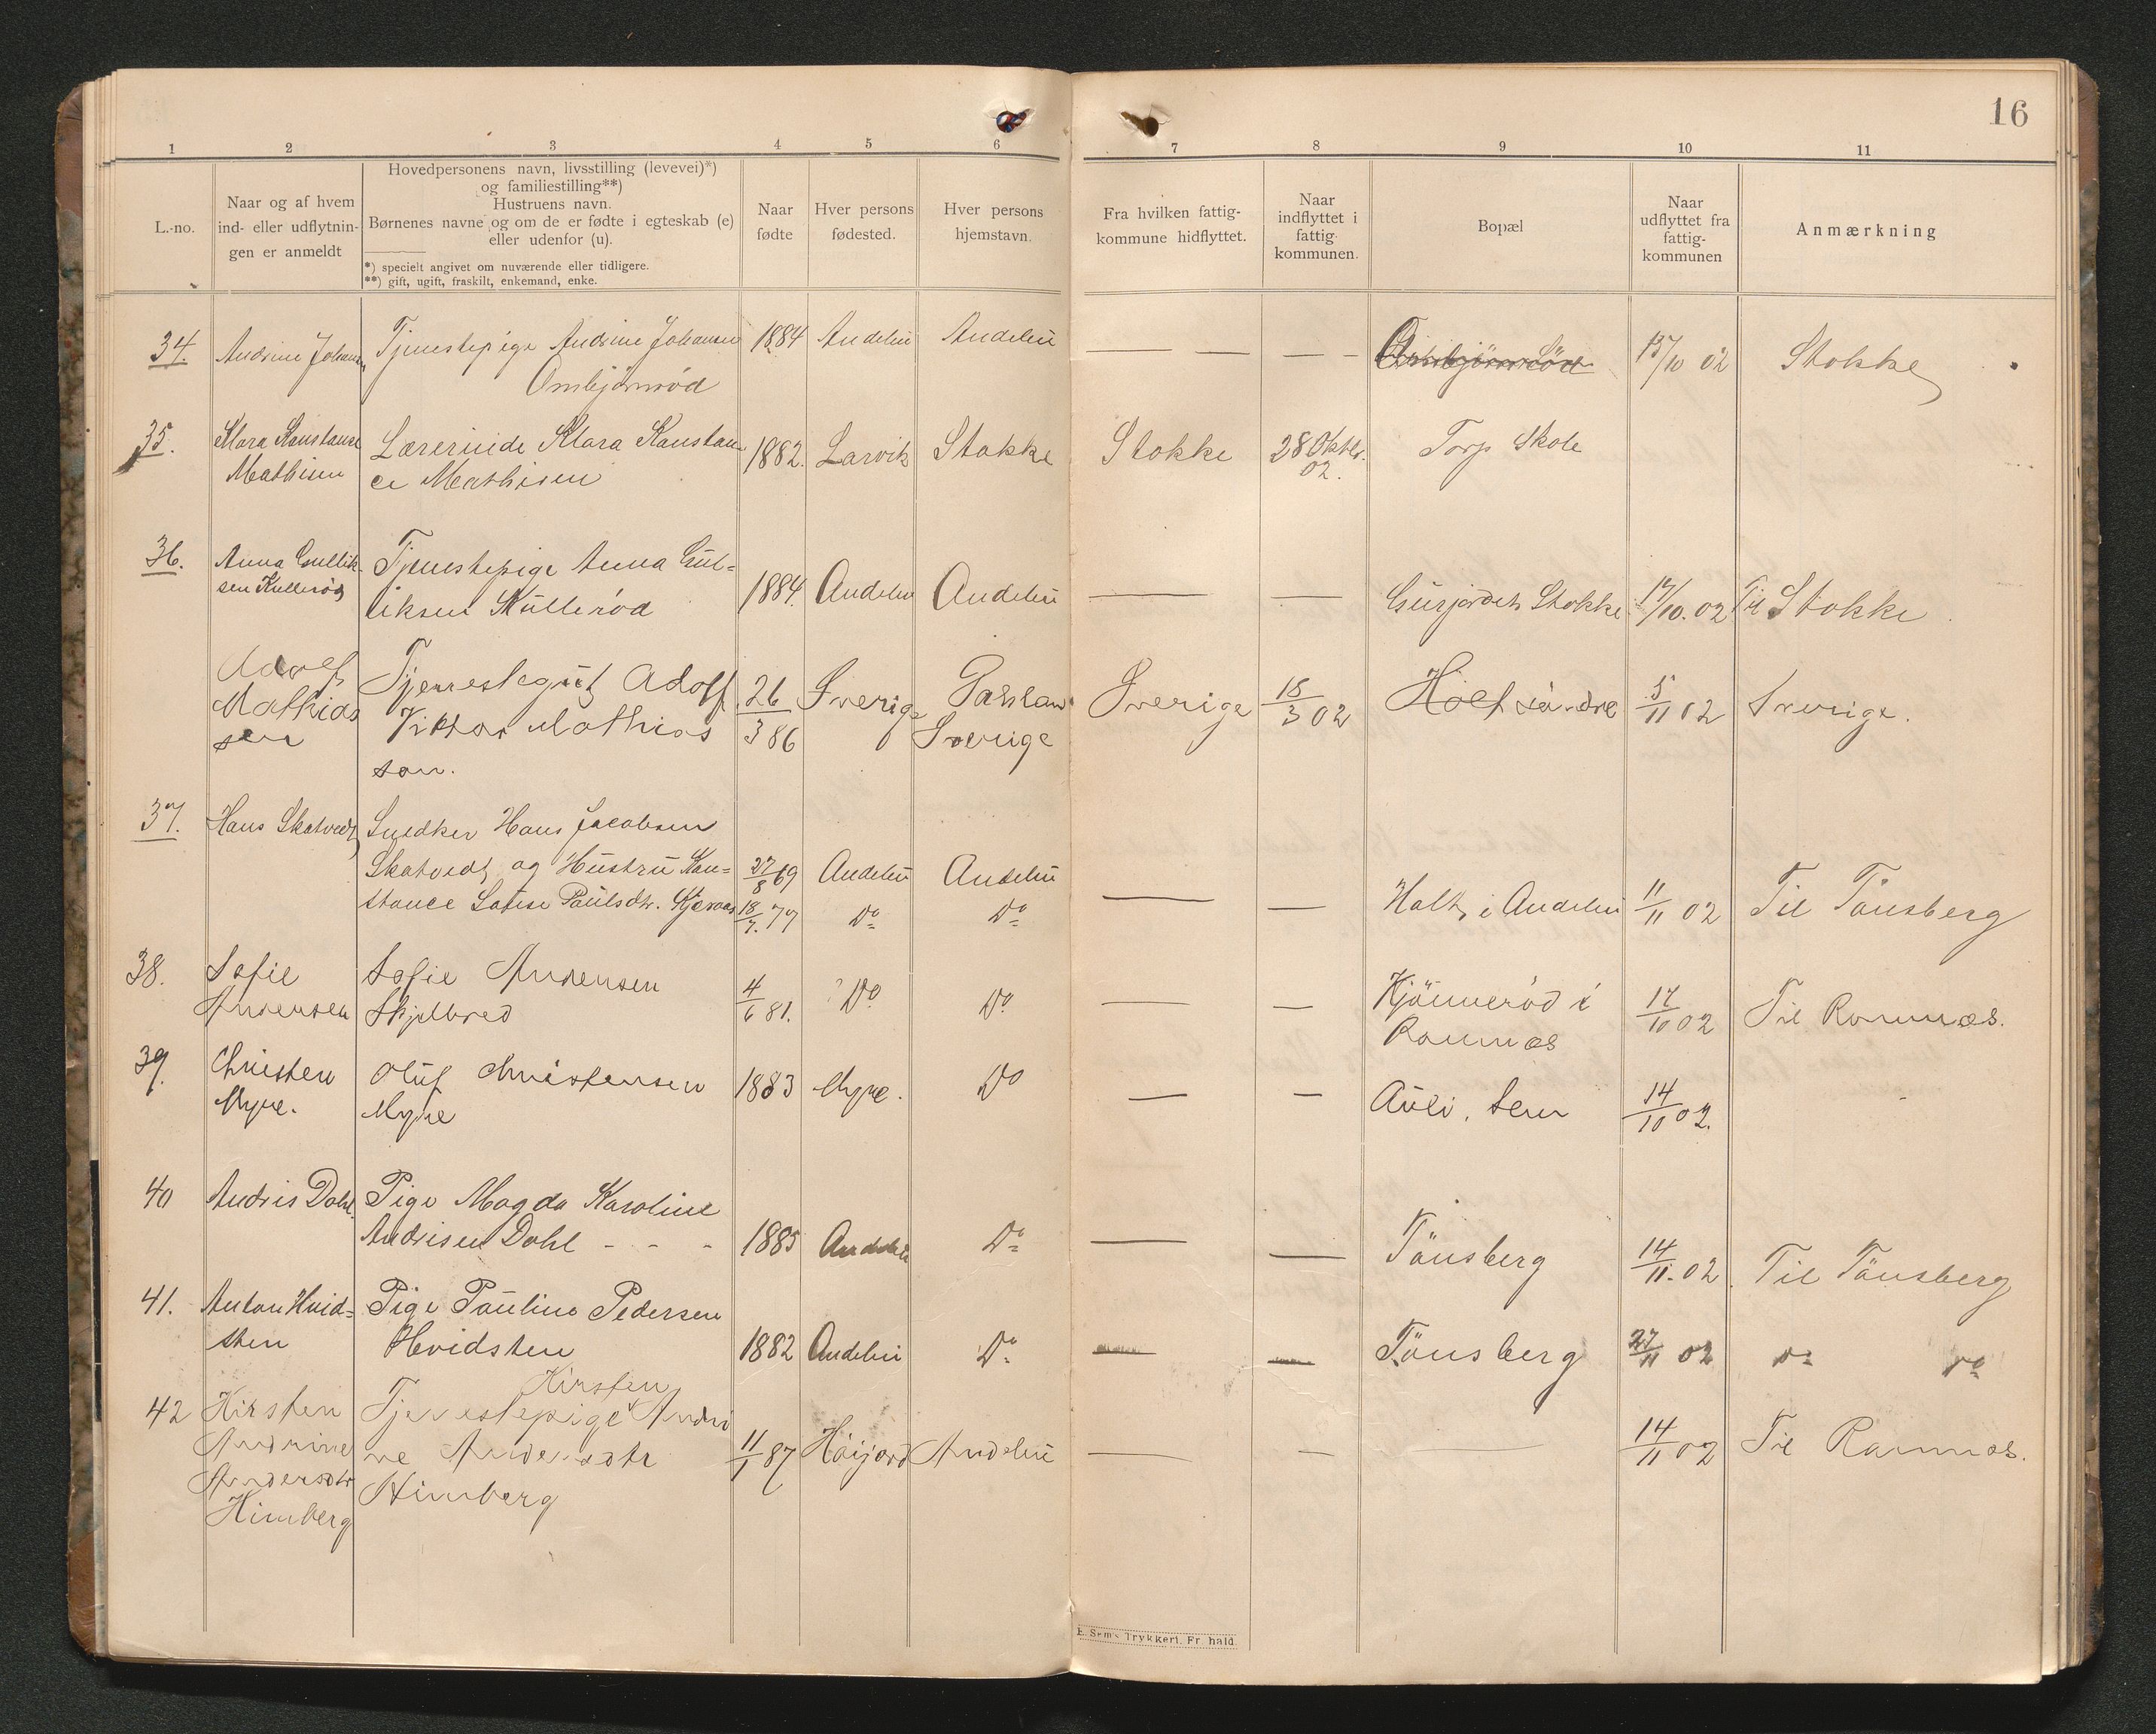 16
1 2 3 4 5 6 7 8 9 10 11
L.-no.
Naar og af hvem
ind- eller udflytnin-
gen er anmeldt
Hovedpersonens navn, livsstilling (levevei)*)
og familiestilling**)
Hustruens navn.
Børnenes navne og om de er fødte i egteskab (e)
eller udenfor (u).
*) specielt angivet om nuværende eller tidligere.
**) gift, ugift, fraskilt, enkemand, enke.
Naar
fødte
Hver persons
fødested.
Hver persons
hjemstavn.
Fra hvilken fattig-
kommune hidflyttet.
Naar
indflyttet i
fattig-
kommunen.
Bopæl
Naar
udflyttet fra
fattig-
kommunen
Anmærkning
34. Andrine Johansen Tjenestepige Andrine Johansen 1884 Andebu Andebu — — — — 15/10 02 Stokke
Ombjörnröd
35. Klara Konstanse Lærerinde Klara Konstan 1882. Larvik Stokke Stokke 28 Oktbr. Torp Skole
Mathisen ce Mathisen 02.
36. Anna Gullik- Tjenestepige Anna Gul-
sen Kullerød liksen Kullerød 1884. Andebu Andebu — — Gurjordet Stokke 17/10. 02 Til Stokke
Adolf Tjenestegut Adolf 26 Sverige Sverige 18/3 02 Holt söndre 5/11 02 Sverige.
Mathias Viktor Mathias 3 86 Sverige
sen son.
37. Hans Skatvedt Snedker Hans Jacobsen
Skatvedt og Hustru Kon- 27/8 69 Andebu Andebu
stance Lovise Paulsdtr. Kjeraas 18/7. 77 Do Do — — Holt, i Andebu 11/11 02 Til Tönsberg
38. Sofie Sofie Andersen 4/6 81. Do Do — — Kjönneröd i 17/10 02 Til Ramnæs.
Andersen Skjelbred Ramnæs
39. Christen Oluf Christensen 1883 Myre. Do — — Auli, Sem 14/10 02.
Myre. Myre
40 Andris Dahl. Pige Magda Karoline
Andrisen Dahl - - - 1885 Andebu Do — — Tönsberg 14/11. 02 Til Tönsberg
41. Anton Hvid- Pige Pauline Pedersen
sten Hvidsten 1882 Andebu Do — — Tönsberg 27/11 02 Do Do
Kirsten
42 Kirsten Tjenestepige Andri
Andrine ne Andersdtr 11/1 87 Höijord Andebu — — — 14/11 02 Til Ramnæs.
Andersdtr Himberg
Himberg
E. Sem's Trykkeri. Fr.hald.